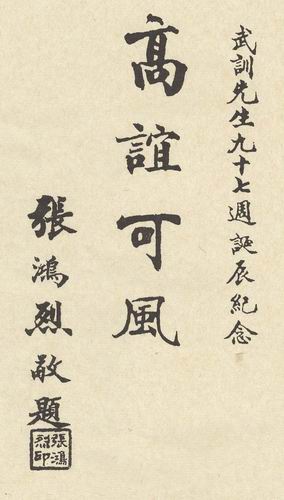 武訓先生九十七週誕辰紀念
高誼可風
張鴻烈敬題
張鴻烈印